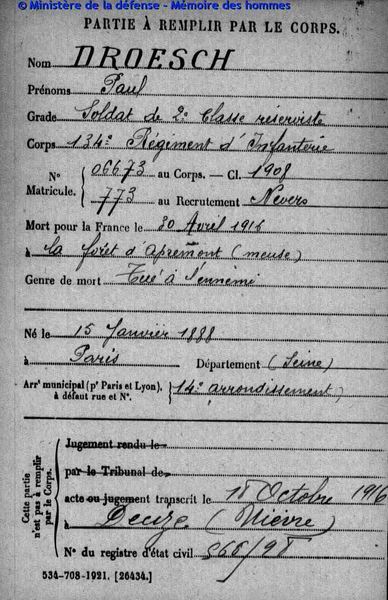 © Ministère de la défense - Mémoire des hommes
PARTIE À REMPLIR PAR LE CORPS.
Nom DROESCH
Prénoms Paul
Grade Soldat de 2e Classe réserviste
Corps 134e Régiment d'Infanterie
N° Matricule. { 06673 au Corps. — Cl. 1908
773 au Recrutement Nevers
Mort pour la France le 30 Avril 1916
à la forêt d'apremont (meuse)
Genre de mort Tué à l'ennemi
Né le 15 Janvier 1888
à Paris Département (Seine)
Arrt municipal (pr Paris et Lyon), à défaut rue et N°. { 14e arrondissement)
Cette partie n'est pas à remplir par le Corps.
Jugement rendu le
par le Tribunal de
acte ou jugement transcrit le 18 Octobre 1916
à Decize (Nièvre)
N° du registre d'état civil 566/98
534-708-1921. [26434.]